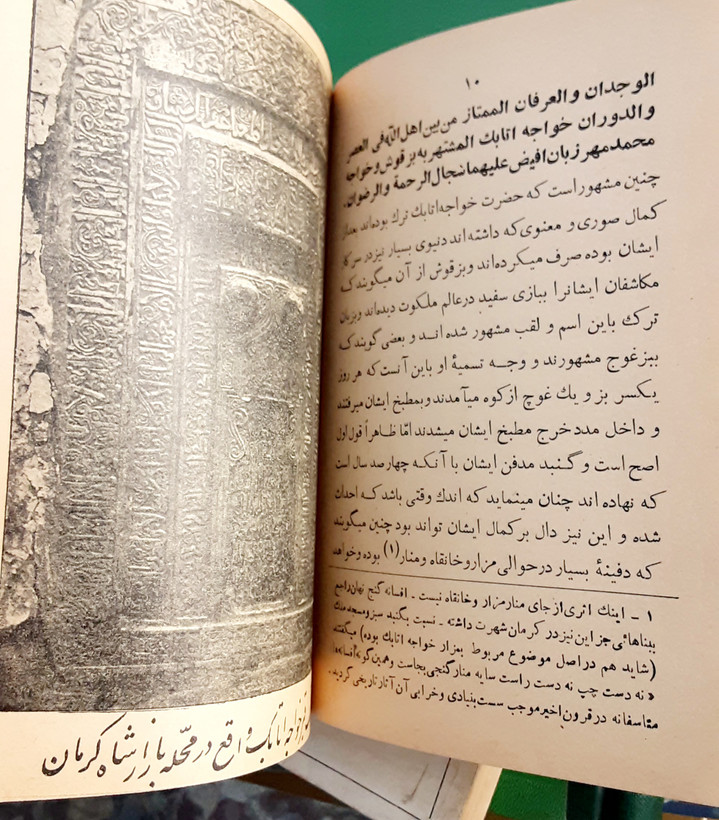 ۱۰
الوجدان والعرفان الممتاز من بین اهل الله فی العصر
والدوران خواجه اتابک المشتهر به بزقوش وخواجه
محمد مهرزبان افیض علیهما سجال الرحمة والرضوان.
چنین مشهور است که حضرت خواجه اتابک ترک بوده‌اند بعداز
کمال صوری و معنوی که داشته‌اند دنیوی بسیار نیز در سرکار
ایشان بوده صرف میکرده‌اند وبزقوش از آن میگویند که
مکاشفان ایشانرا ببازی سفید در عالم ملکوت دیده‌اند وبزبان
ترک باین اسم و لقب مشهور شده انـد و بعضی گویند که
ببزغوج مشهورند و وجـه تسمیهٔ او باین آنست که هر روز
یکسر بز و یك غوچ از کوه میآمدند وبمطبخ ایشان میرفتند
و داخل مدد خرج مطبخ ایشان میشدند امّا ظـاهراً قول اول
اصح است و گنبد مدفن ایشان با آنکه چهارصد سال است
که نهاده اند چنان مینماید که اندك وقتی باشد کـه احداث
شده و این نیز دال بر کمال ایشان تواند بود چنین میگویند
که دفینهٔ بسیار در حوالی مزار و خانقاه و منار (۱) بوده وخواهد
۱ - اینك اثری از جای منار مزار و خانقاه نیست - افسانه گنج نهان راجع
ببناهائی جز این نیز در کرمان شهرت داشته - نسبت بگنبد سبز ومسجد ملك
(شاید هم در اصل موضوع مربوط بمزار خواجه اتابك بوده) میگفتند
« نه دست چپ نه دست راست سایه منار گنجی بجاست وهمین گونه افسانه‌ها
متأسفانه در قرون اخیر موجب سست بنیادی و خرابی آن آثار تاریخی گردید.
خواجه اتابک واقع در محله بازار شاه کرمان